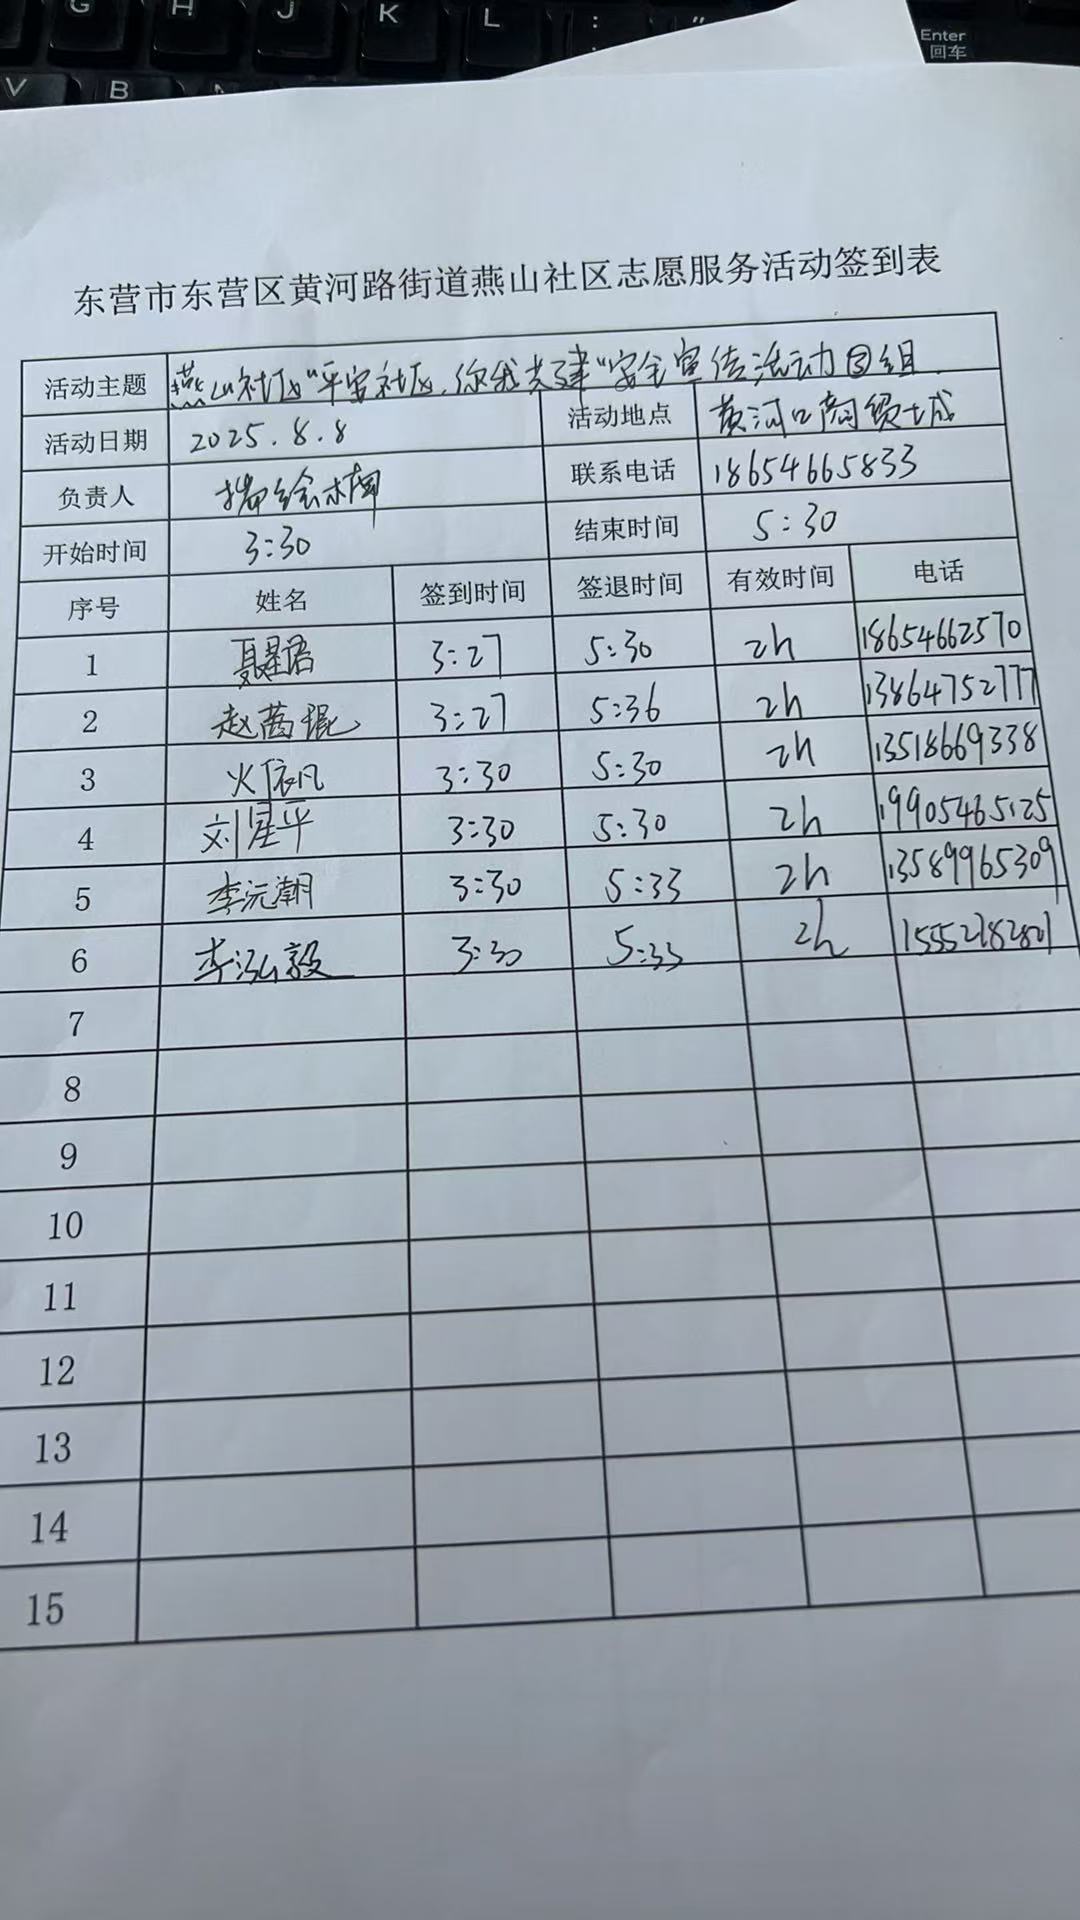 G H J K L : "
Enter
回车
V B N
东营市东营区黄河路街道燕山社区志愿服务活动签到表
活动主题 燕山社区"平安社区,你我共建"安全宣传活动③组
活动日期 2025.8.8 活动地点 黄河口商贸城
负责人 联系电话 18654665833
开始时间 3:30 结束时间 5:30
序号 姓名 签到时间 签退时间 有效时间 电话
1 聂星语 3:27 5:30 2h 18654662570
2 赵茜琨 3:27 5:36 2h 13864752777
3 火依凡 3:30 5:30 2h 13518669338
4 刘星平 3:30 5:30 2h 19905465125
5 李沅潮 3:30 5:33 2h 13589965309
6 李泓毅 3:30 5:33 2h 15552182801
7
8
9
10
11
12
13
14
15